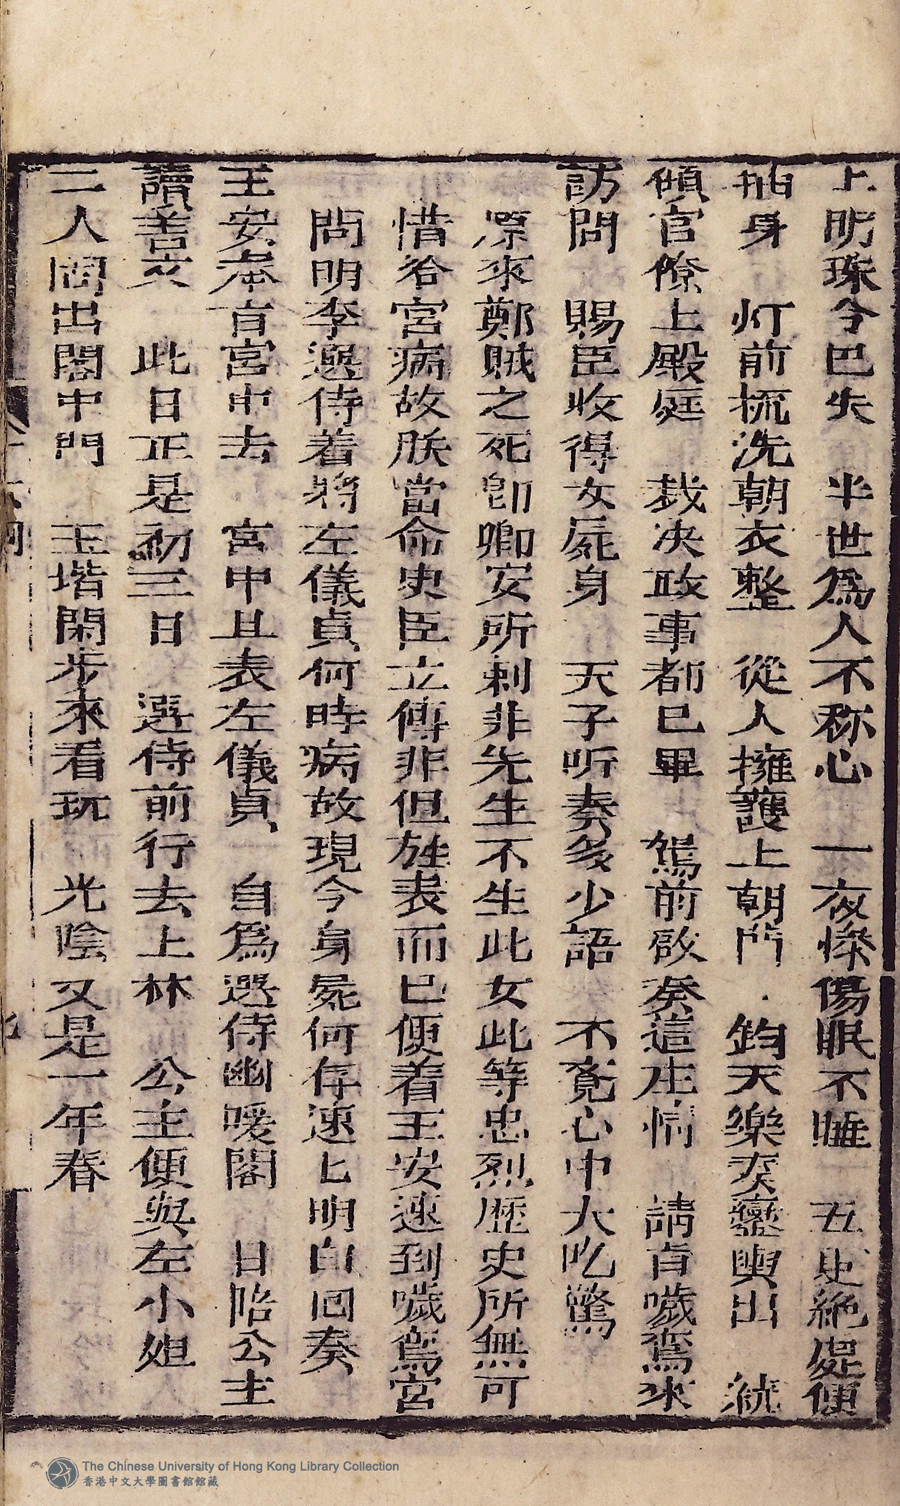 上明珠今巴失　半世為人不称心　一夜慘傷眠不睡　五更絶処便
抽身　灯前梳洗朝衣整　從人擁護上朝門　鈞天樂奏鑾輿出　統
傾官僚上殿庭　裁决政事都已畢　駕前啟奏這庄情　請旨噦鸞來
訪問　賜臣收得女屍身　天子听奏多少語　不覚心中大吃驚
原來鄭賊之死卽卿安所刺非先生不生此女此等忠烈歷史所無可
惜咎宮病故朕當命史臣立傳非但旌表而已便着王安速到噦鸞宮
問明李選侍着將左儀貞何時病故現今身屍何存速匕明白囬奏
王安奉旨宮中去　宮中且表左儀貞　自為選侍幽嗳閣　日陪公主
讀善文　此日正是初三日　選侍前行去上林　公主便與左小姐
二人同出閣中門　玉堦閑步來看玩　光陰又是一年春
The Chinese University of Hong Kong Library Collection
香港中文大學圖書館館藏